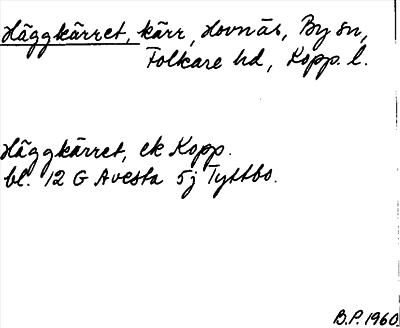 Häggkärret, kärr, Hovnäs, By sn,
Folkare hd, Kopp. l.
Häggkärret, ek Kopp.
bl. 12 G Avesta 5j Tyttbo.
B.P. 1960